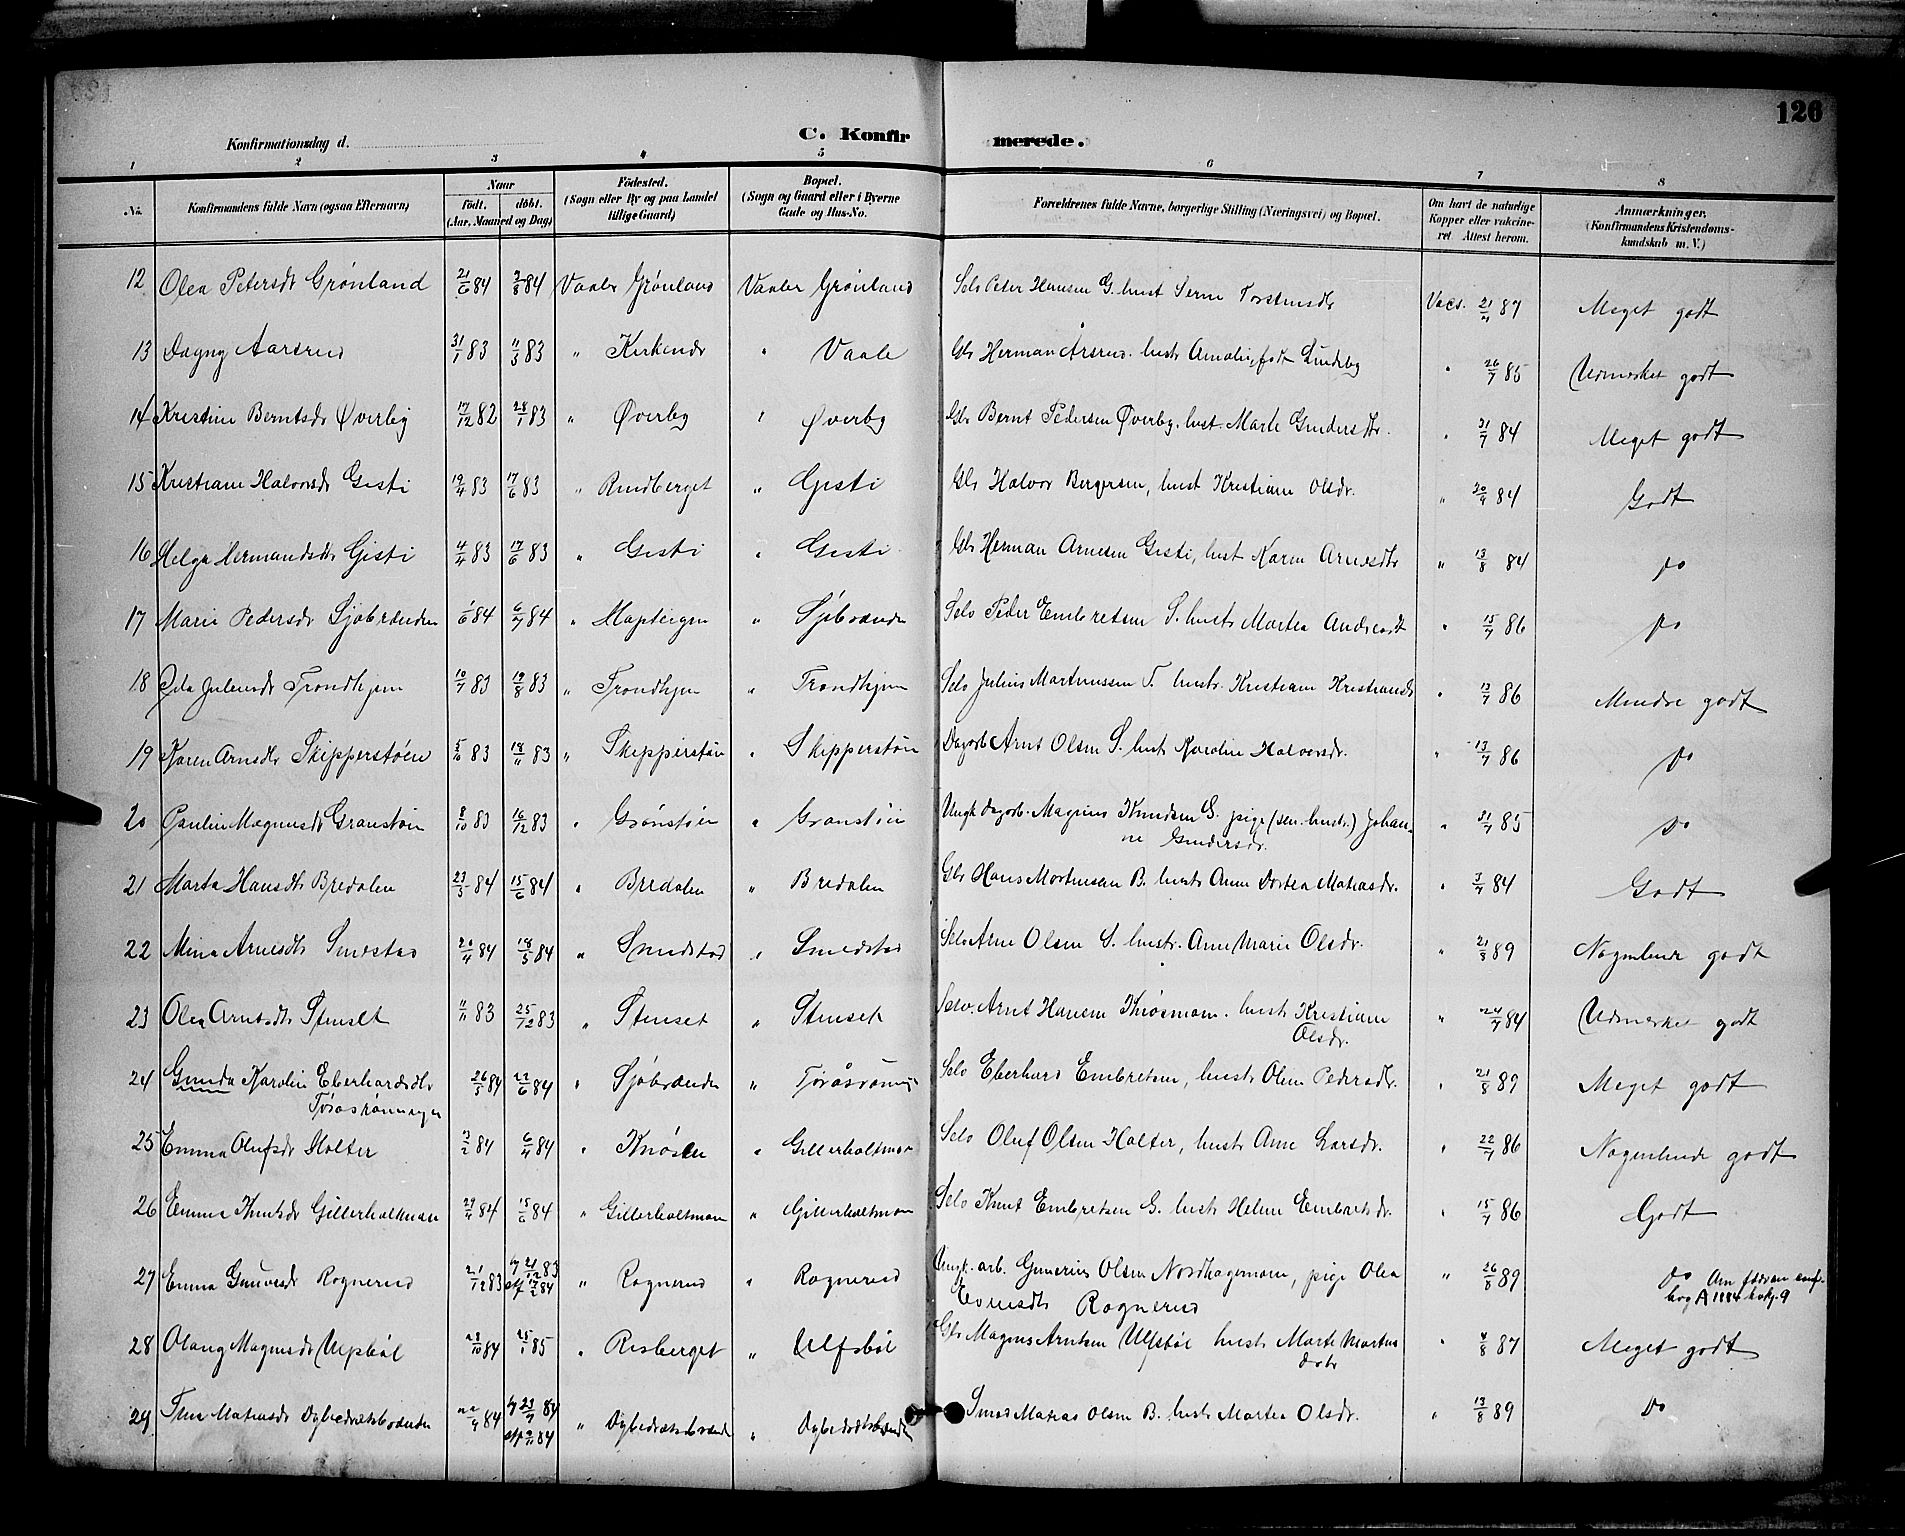 126
Konfirmationsdag d.
C. Konfirmerede.
1 2 3 4 5 6 7 8
No. Konfirmandens fulde Navn (ogsaa Efternavn) Naar født. døbt. (Aar, Maaned og Dag) Fødested. (Sogn eller By og paa Landet tillige Gaard) Bopæl. (Sogn og Gaard eller i Byerne Gade og Hus-No. Forældrenes fulde Navne, borgerlige Stilling (Næringsvei) og Bopæl. Om havt de naturlige Kopper eller vakcineret. Attest herom. Anmærkninger. (Konfirmandens Kristendomskundskab m. V.)
12 Olea Petersdt Grønland 21/6 84 3/8 84 Vaaler Grønland Vaaler Grønland Selv Peter Hansen G. hust Serine Torstensdtr Vacs. 21/11 87 Meget godt
13 Dagny Aarsrud 31/1 83 11/3 83 " Kirkenær " Vaale Gbr Herman Årsrud. hustr Amalie, født Lundeby " 26/7 85 Udmærket godt
14 Kristine Berntsdr Øverby 17/12 82 28/1 83 " Øverby " Øverby Gbr Bernt Pedersen Øverby, hust. Marte Gundersdtr. " 31/7 84 Meget godt
15 Kristiane Halvorsdr Gisti 19/4 83 17/6 83 " Rundberget " Gisti Gbr Halvor Bergersen, hust Kristiane Olsdr. " 30/9 84 Godt
16 Helga Hermandsdtr Gisti 4/4 83 17/6 83 " Gisti " Gisti Gbr Herman Arnesen Gisti, hust Karen Arnesdtr " 13/8 84 do
17 Marie Pedersdr Sjøbrænden 1/6 84 6/7 84 " " Sjøbrænden Selv Peder Embretsen S. hustr Martea Andreasdt " 15/7 86 do
18 Juliusdr Trondhjem 10/7 83 19/8 83 " Trondhjem " Trondhjem Selv Julius Martinussen T. hustr. Kristiane Kristiansdr " 13/7 86 Mindre godt
19 Karen Arnsdtr Skipperstøen 5/10 83 18/11 83 " Skipperstøen " Skipperstøen Dagarb Arnt Olsen S. hustr Karoline Halvorsdr. " 13/7 86 do
20 Pauline Magnusdr Granstøen 8/10 83 16/12 83 " Granstøen " Granstøen Ungk dagarb. Magnus Knudsen G. pige (sen. hustr.) Johan-
ne Gundersdr. " 31/7 85 do
21 Marta Hansdtr Bredalen 23/3 84 15/6 84 " Bredalen " Bredalen Gbr Hans Mortensen B. hustr Anne Dortea Matiasdr. " 3/7 84 Godt
22 Mina Arnesdtr Smestad 20/4 84 18/5 84 " Smedstad " Smedstad Selv Arne Olsen S. hustr. Anne Marie Olsdr. " 21/8 89 Nogenlunde godt
23 Olea Arntsdtr Stenset 11/11 83 25/12 83 " Stenset " Stenset Selv. Arnt Hansen Knøsmoen. hustr Kristiane
Olsdr. " 24/7 84 Udmærket godt
24 Gunda Karolin Eberhardsdtr
Toraasrønningen 26/5 84 22/6 84 " Sjøbrænden " Selv Eberhard Embretsen, hustr Oline Pedersdtr. " 21/8 89 Meget godt
25 Emma Olufsdr Holter 3/2 84 6/4 84 " Knøsen " Gillerholtmoen Selv Oluf Olsen Holter, hustr Anne Larsdr. " 22/7 86 Nogenlunde godt
26 Emma Knutsdr Gillerholtmoen 29/4 84 15/6 84 " Gillerholtmoen " Gillerholtmoen Selv Knut Embretsen G. hustr Helene Embretsdr. " 15/7 86 Godt
27 Emma Rognerud 21/12 83 21/12 83 17/2 84 " Rognerud " Rognerud Ungk. arb. Gunerius Olsen Nordhagemoen, pige Olea
Evensdtr Rognerud " 26/8 89 do
28 Olaug Magnusdr Ulfsbøl 28/10 84 25/1 85 " Risberget " Ulfsbøl Gbr Magnus Arntsen Ulfsbøl hustr Marte Martins
datr " 4/8 87 Meget godt
29 Matiasdr Dybedratsbrænden 22/9 84 23/9 84 9/11 84 " Dybedratsbrænden " Dybedratsbrænden Smed Matias Olsen B. hustr Martea Olsdr. " 13/8 89 do